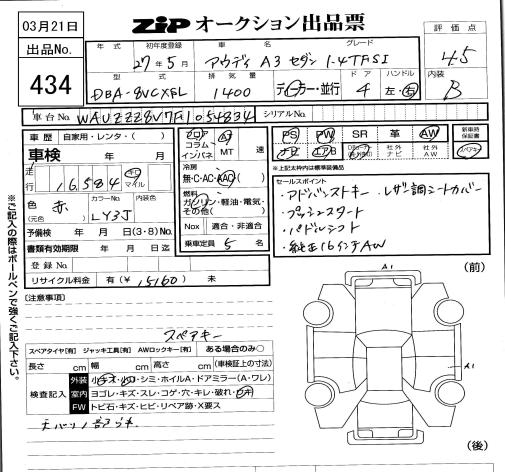 03月21日
ZIP オークション出品票
出品No.
434
年式 初年度登録 車名 グレード
27年5月 アウディ A3 セダン 1.4TFSI
評価点
4.5
型式 排気量 ドア ハンドル
DBA-8VCXSL 1400 ディーラー・並行 4 左・右
内装
B
車台No. WAUZZZ8V7F1054834 シリアルNo.
車歴 自家用・レンタ・( )
車検 年 月
走行 16,584 キロ マイル
色 赤 (元色)
カラーNo. LY3J
内装色
予備検 年 月 日(3・8)No.
書類有効期限 年 月 日迄
登録No.
リサイクル料金 有(¥ 15160) 未
フロア コラム インパネ
AT MT 速
冷房
無・C・AC・AAC
燃料
ガソリン・軽油・電気・その他( )
Nox 適合・非適合
乗車定員 5 名
PS PW SR 革 AW
新車時保証書
ナビ エアB 社外ナビ 社外AW
*上記太枠内は標準装備品
セールスポイント
・アドバンストキー ・レザー調シートカバー
・プッシュスタート
・パドルシフト
・純正16インチAW
※ご記入の際はボールペンで強くご記入下さい。
[注意事項]
スペアキー
スペアタイヤ[有] ジャッキ工具[有] AWロックキー[有] ある場合のみ○
長さ cm 幅 cm 高さ cm (車検証上の寸法)
検査記入
外装 小キズ・小凹・シミ・ホイルA・ドアミラー(A・ワレ)
室内 ヨゴレ・キズ・スレ・コゲ・穴・キレ・破れ・
FW トビ石・キズ・ヒビ・リペア跡・X要ス
(前)
A1
A1
(後)